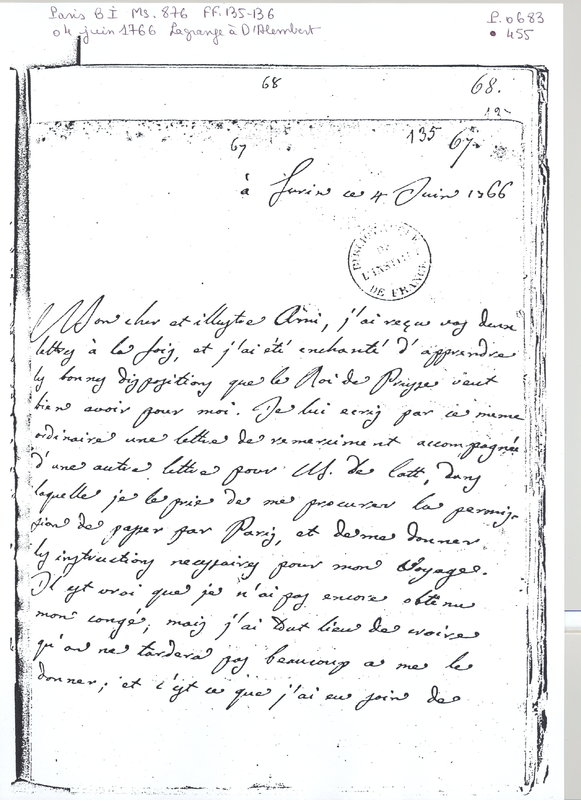 Paris BI Ms. 876 ff. 135-136
04 juin 1766 Lagrange à D'Alembert
P. 0683
• 455
68
68.
135
67
67.
à Turin ce 4 Juin 1766
BIBLIOTHEQUE
DE
L'INSTITUT
DE FRANCE
Mon cher et illustre Ami, j'ai reçu vos deux
lettres à la fois, et j'ai été enchanté d'apprendre
les bonnes dispositions que le Roi de Prusse veut
bien avoir pour moi. Je lui ecris par ce meme
ordinaire une lettre de remerciment accompagnée
d'une autre lettre pour M. de Catt, dans
laquelle je le prie de me procurer la permis-
sion de passer par Paris, et de me donner
les instructions necessaires pour mon voyage.
Il est vrai que je n'ai pas encore obtenu
mon congé; mais j'ai tout lieu de croire
qu'on ne tardera pas beaucoup a me le
donner; et c'est ce que j'ai eu soin de